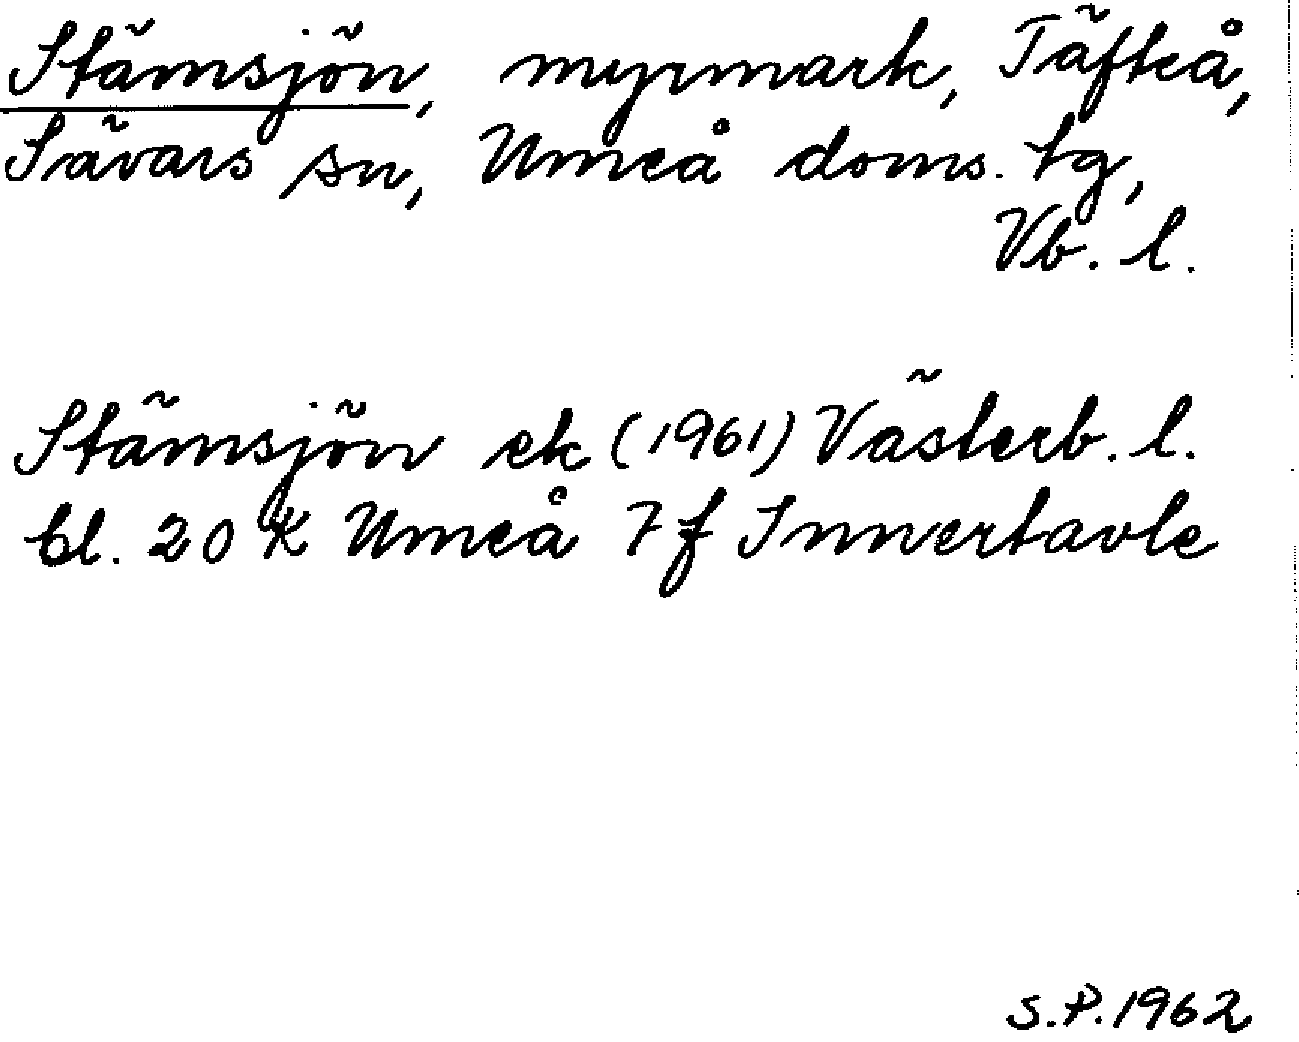 Stämsjön, myrmark, Täfteå,
Sävars sn, Umeå doms. tg,
Vb. l.
Stämsjön ek (1961) Västerb. l.
bl. 20 K Umeå 7 f Innertavle
S.P. 1962